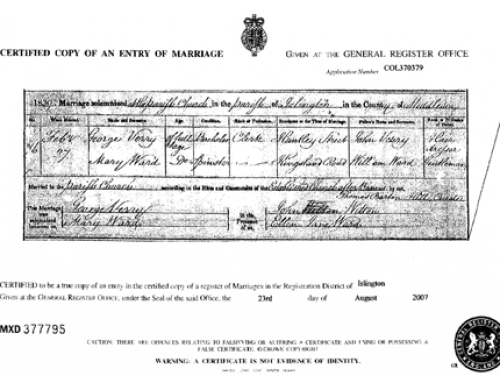 CERTIFIED COPY OF AN ENTRY OF MARRIAGE
GIVEN AT THE GENERAL REGISTER OFFICE
Application Number COL370379
Marriage solemnized Parish Church in the parish of Islington in the County of Middlesex
When Married Name and Surname Age Condition Rank or Profession Residence at the Time of Marriage Father's Name and Surname
Feb 27 George Verry of full age Bachelor Clerk Street John Verry Hair
Mary Ward Do Spinster Kingsland Road William Ward Gentleman
Married in the Parish Church according to the Rites and Ceremonies of the Established Church after by me,
Thomas Curate
This Marriage was George Verry in the Presence of us, John Wilson
Mary Ward Ellen Jane Ward
CERTIFIED to be a true copy of an entry in the certified copy of a register of Marriages in the Registration District of Islington
Given at the GENERAL REGISTER OFFICE, under the Seal of the said Office, the 23rd day of August 2007
MXD 377795
CAUTION: THERE ARE OFFENCES RELATING TO FALSIFYING OR ALTERING A CERTIFICATE AND USING OR POSSESSING A
FALSE CERTIFICATE. © CROWN COPYRIGHT
WARNING: A CERTIFICATE IS NOT EVIDENCE OF IDENTITY.